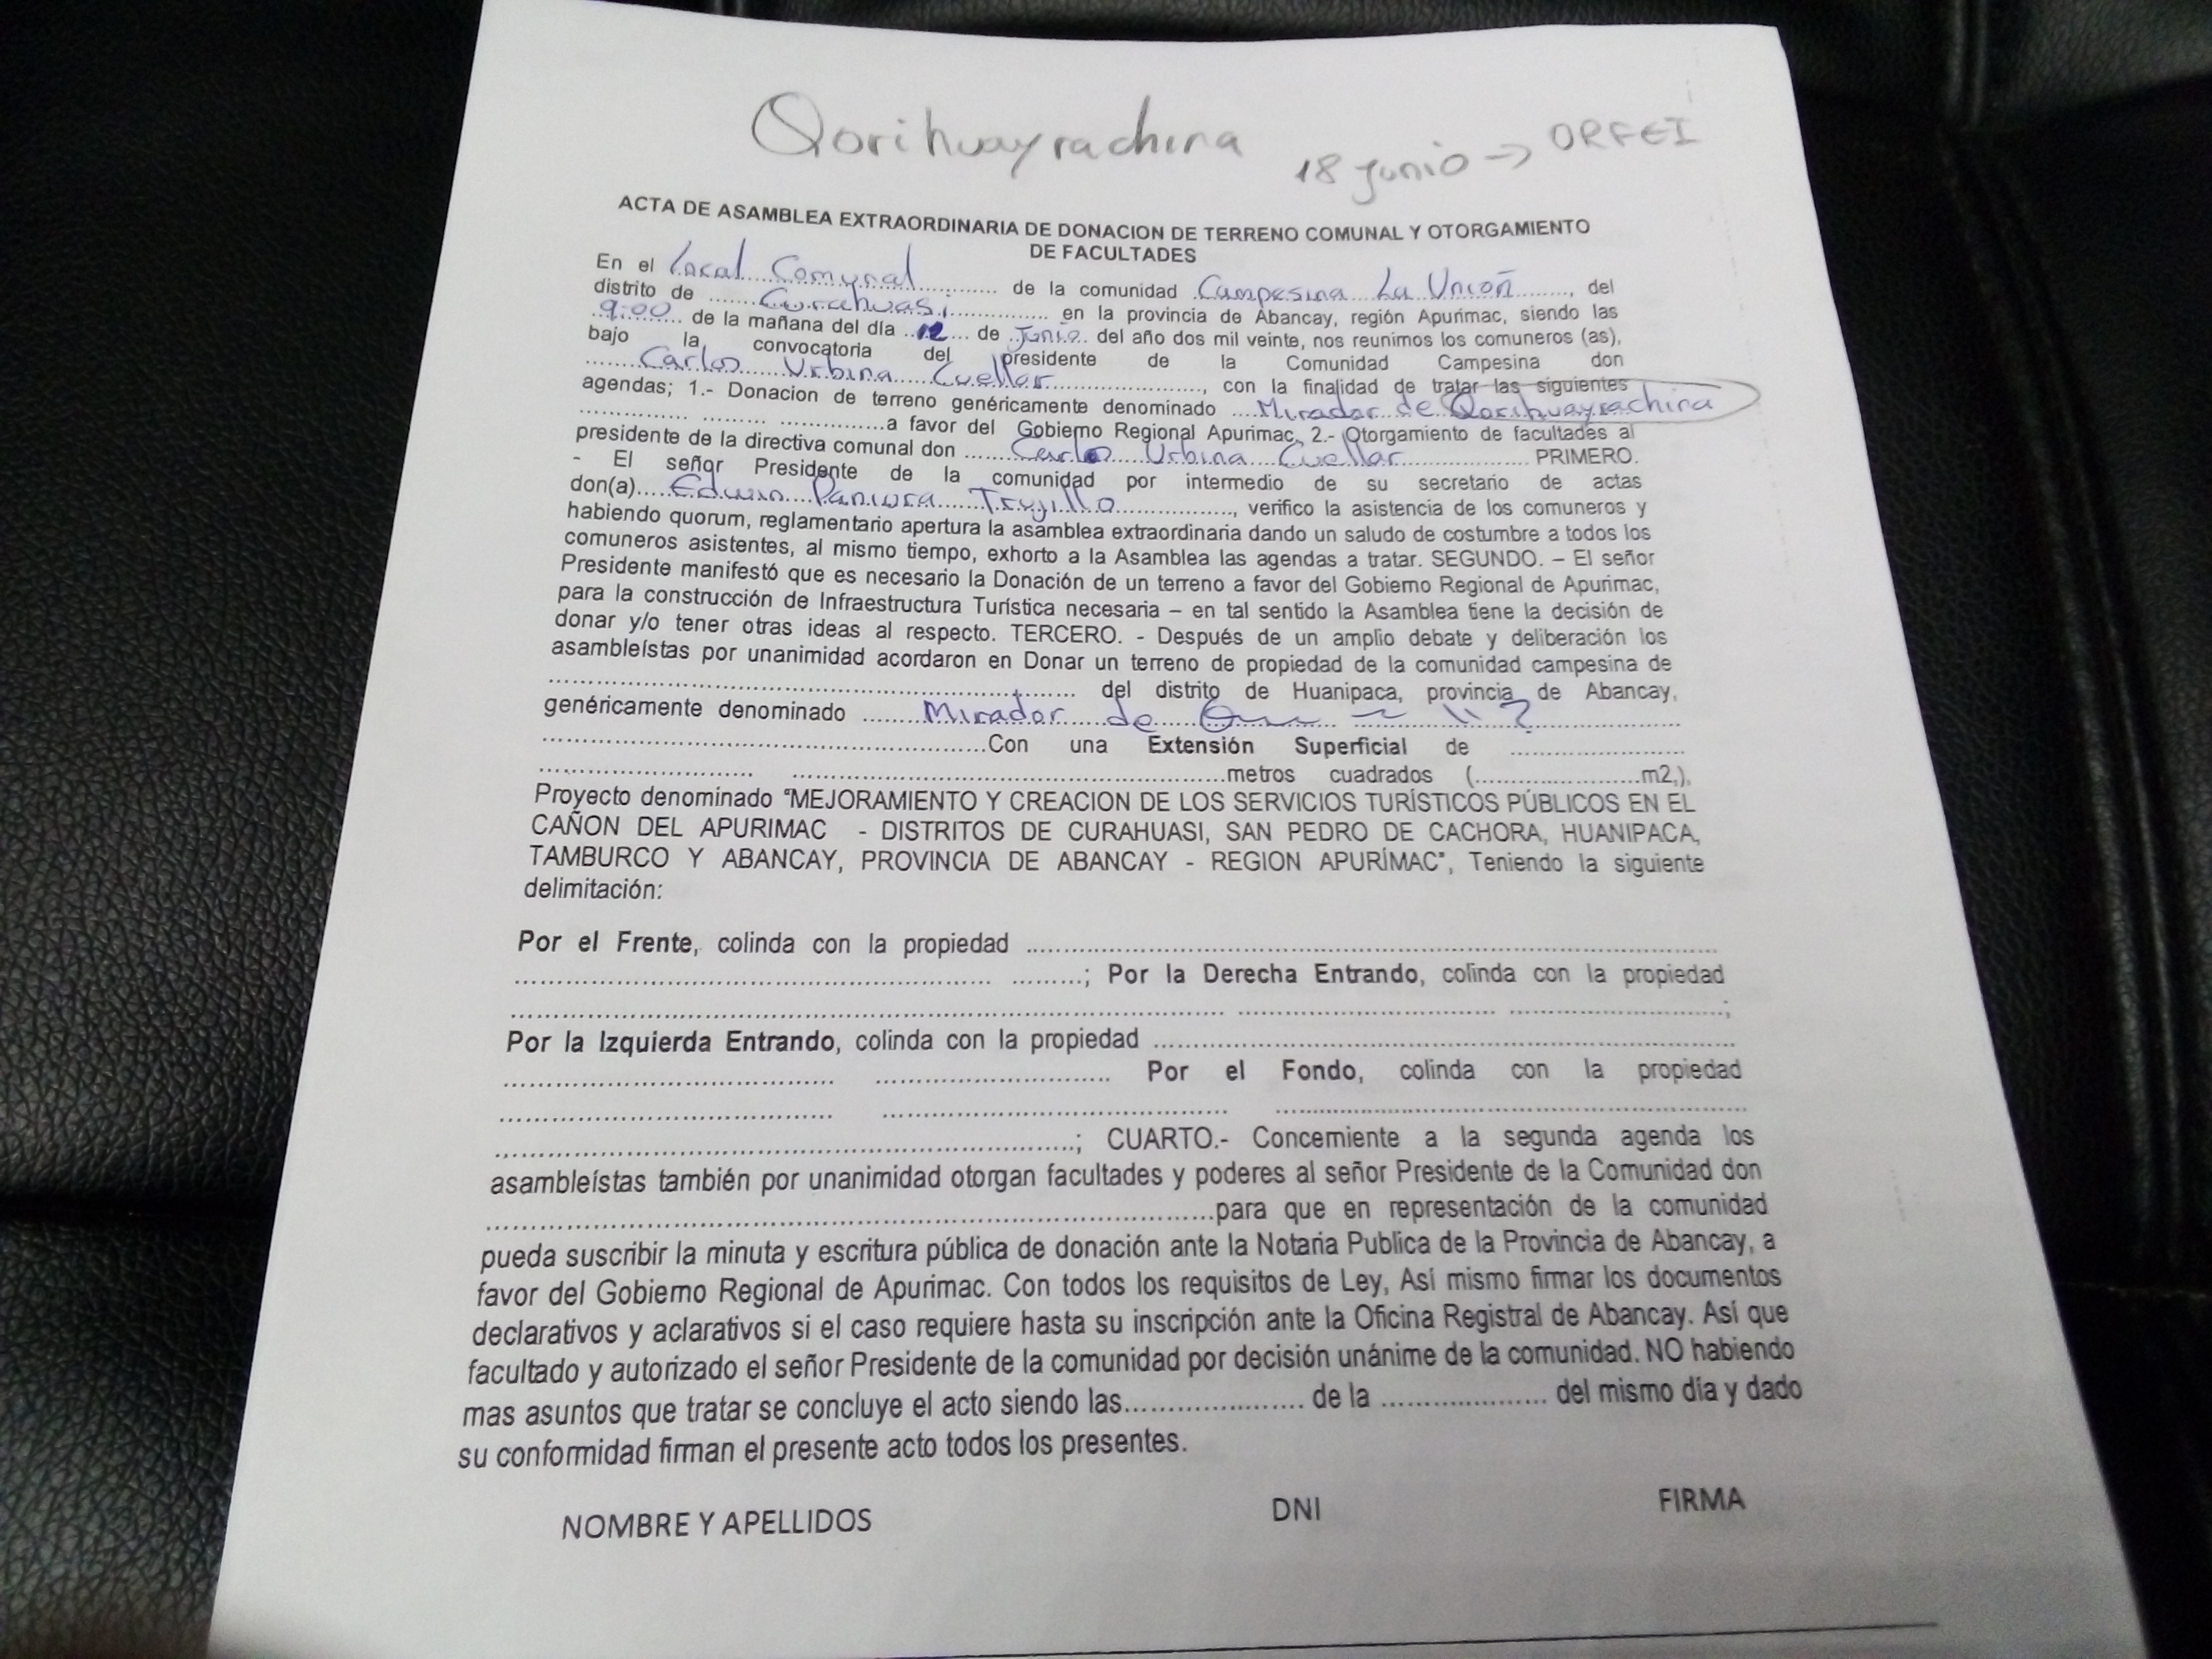 Qorihuayrachina 18 junio -> ORFEI
ACTA DE ASAMBLEA EXTRAORDINARIA DE DONACION DE TERRENO COMUNAL Y OTORGAMIENTO
DE FACULTADES
En el Local Comunal ............ de la comunidad Campesina La Unión ........, del
distrito de ....... Curahuasi, ................ en la provincia de Abancay, región Apurimac, siendo las
9:00 ...... de la mañana del día ..12.... de Junio.. del año dos mil veinte, nos reunimos los comuneros (as),
bajo la convocatoria del presidente de la Comunidad Campesina don
...... Carlos Urbina Cuellar ......................, con la finalidad de tratar las siguientes
agendas; 1.- Donacion de terreno genéricamente denominado .... Mirador de Qorihuayrachina
.............. ......... ...............a favor del Gobierno Regional Apurimac, 2.- Otorgamiento de facultades al
presidente de la directiva comunal don ...... Carlos Urbina Cuellar .................. PRIMERO.
- El señor Presidente de la comunidad por intermedio de su secretario de actas
don(a)..... Edwin Paniura Trujillo ................., verifico la asistencia de los comuneros y
habiendo quorum, reglamentario apertura la asamblea extraordinaria dando un saludo de costumbre a todos los
comuneros asistentes, al mismo tiempo, exhorto a la Asamblea las agendas a tratar. SEGUNDO. – El señor
Presidente manifestó que es necesario la Donación de un terreno a favor del Gobierno Regional de Apurimac,
para la construcción de Infraestructura Turística necesaria – en tal sentido la Asamblea tiene la decisión de
donar y/o tener otras ideas al respecto. TERCERO. - Después de un amplio debate y deliberación los
asambleístas por unanimidad acordaron en Donar un terreno de propiedad de la comunidad campesina de
........................................................................ del distrito de Huanipaca, provincia de Abancay,
genéricamente denominado ........ Mirador de
.............................................................Con una Extensión Superficial de ........................
.............................. .............................................................metros cuadrados (.......................m2,),
Proyecto denominado "MEJORAMIENTO Y CREACION DE LOS SERVICIOS TURÍSTICOS PÚBLICOS EN EL
CAÑON DEL APURIMAC - DISTRITOS DE CURAHUASI, SAN PEDRO DE CACHORA, HUANIPACA,
TAMBURCO Y ABANCAY, PROVINCIA DE ABANCAY - REGION APURÍMAC", Teniendo la siguiente
delimitación:
Por el Frente, colinda con la propiedad ................................................................................
............................................................ .........; Por la Derecha Entrando, colinda con la propiedad
.......................................................................................... ................................ ...........................;
Por la Izquierda Entrando, colinda con la propiedad ......................................................................
.......................................... .............................. Por el Fondo, colinda con la propiedad
.......................................... ............................................ ............................................................
........................................................................; CUARTO.- Concerniente a la segunda agenda los
asambleístas también por unanimidad otorgan facultades y poderes al señor Presidente de la Comunidad don
..........................................................................................para que en representación de la comunidad
pueda suscribir la minuta y escritura pública de donación ante la Notaria Publica de la Provincia de Abancay, a
favor del Gobierno Regional de Apurimac. Con todos los requisitos de Ley, Así mismo firmar los documentos
declarativos y aclarativos si el caso requiere hasta su inscripción ante la Oficina Registral de Abancay. Así que
facultado y autorizado el señor Presidente de la comunidad por decisión unánime de la comunidad. NO habiendo
mas asuntos que tratar se concluye el acto siendo las...................... de la .................... del mismo día y dado
su conformidad firman el presente acto todos los presentes.
NOMBRE Y APELLIDOS DNI FIRMA